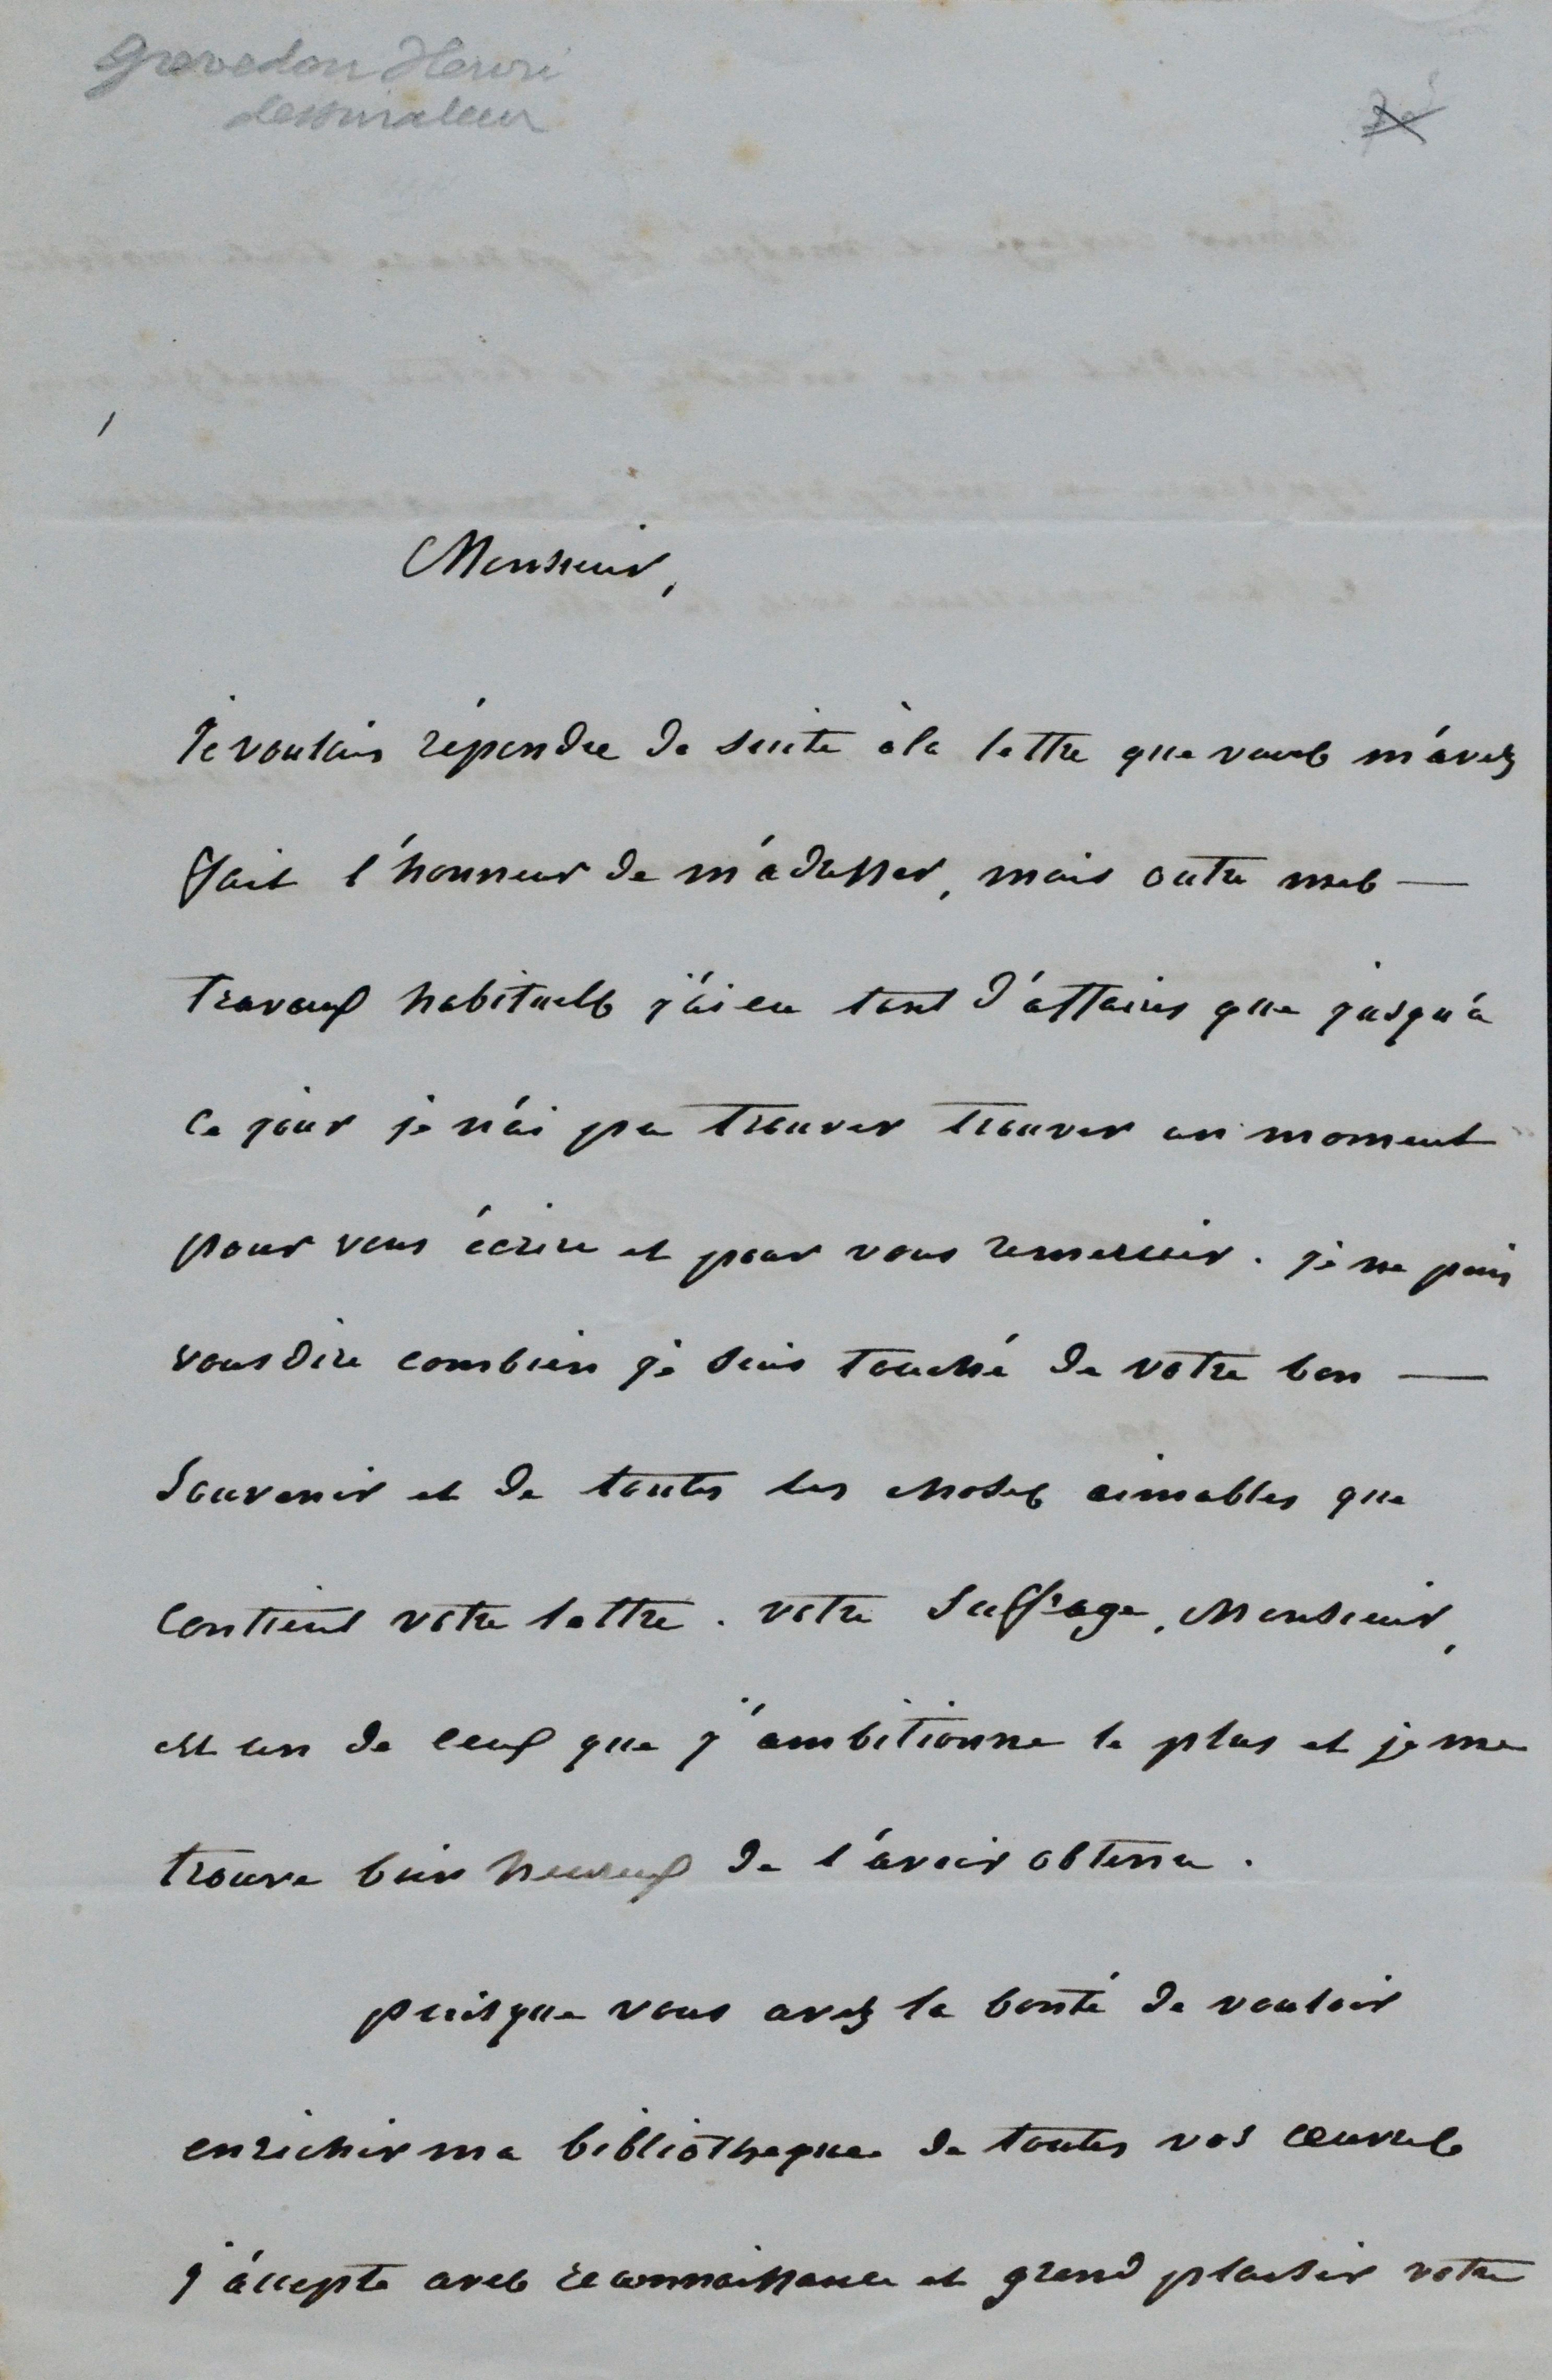 Grevedon Henri
dessinateur
Monsieur,
Je voulais répondre de suite à la lettre que vous m'avez
fait l'honneur de m'adresser, mais outre mes —
travaux habituels j'ai eu tant d'affaires que jusqu'à
ce jour je n'ai pu trouver trouver un moment
pour vous écrire et pour vous remercier. je ne puis
vous dire combien je suis touché de votre bon —
souvenir et de toutes les choses aimables que
contient votre lettre. votre suffrage, Monsieur,
est un de ceux que j'ambitionne le plus et je me
trouve bien heureux de l'avoir obtenu.
puisque vous avez la bonté de vouloir
enrichir ma bibliothèque de toutes vos œuvres
j'accepte avec reconnaissance et grand plaisir votre